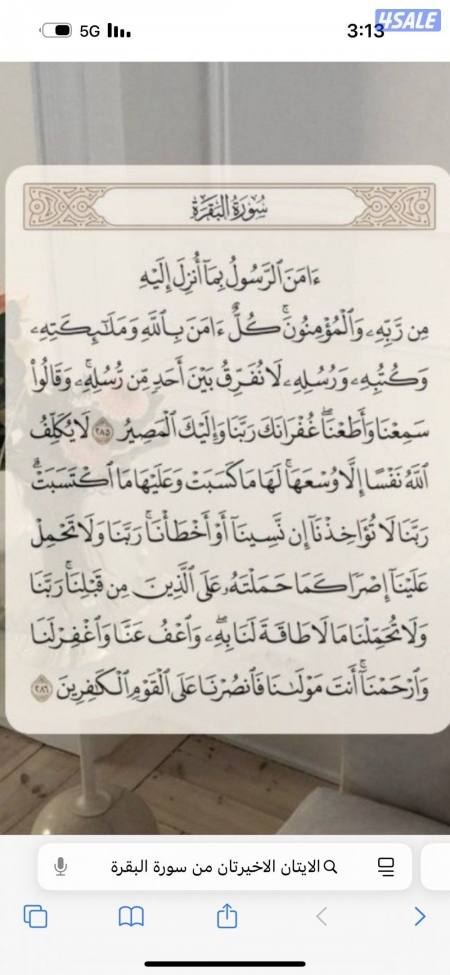 5G
3:13
4SALE
سُورَةُ البَقَرَةِ
ءَامَنَ ٱلرَّسُولُ بِمَآ أُنزِلَ إِلَيْهِ
مِن رَّبِّهِۦ وَٱلْمُؤْمِنُونَۚ كُلٌّ ءَامَنَ بِٱللَّهِ وَمَلَـٰٓئِكَتِهِۦ
وَكُتُبِهِۦ وَرُسُلِهِۦ لَا نُفَرِّقُ بَيْنَ أَحَدٍ مِّن رُّسُلِهِۦۚ وَقَالُوا۟
سَمِعْنَا وَأَطَعْنَاۖ غُفْرَانَكَ رَبَّنَا وَإِلَيْكَ ٱلْمَصِيرُ ٢٨٥ لَا يُكَلِّفُ
ٱللَّهُ نَفْسًا إِلَّا وُسْعَهَاۚ لَهَا مَا كَسَبَتْ وَعَلَيْهَا مَا ٱكْتَسَبَتْۗ
رَبَّنَا لَا تُؤَاخِذْنَآ إِن نَّسِينَآ أَوْ أَخْطَأْنَاۚ رَبَّنَا وَلَا تَحْمِلْ
عَلَيْنَآ إِصْرًا كَمَا حَمَلْتَهُۥ عَلَى ٱلَّذِينَ مِن قَبْلِنَاۚ رَبَّنَا
وَلَا تُحَمِّلْنَا مَا لَا طَاقَةَ لَنَا بِهِۦۖ وَٱعْفُ عَنَّا وَٱغْفِرْ لَنَا
وَٱرْحَمْنَآۚ أَنتَ مَوْلَىٰنَا فَٱنصُرْنَا عَلَى ٱلْقَوْمِ ٱلْكَـٰفِرِينَ ٢٨٦
الايتان الاخيرتان من سورة البقرة